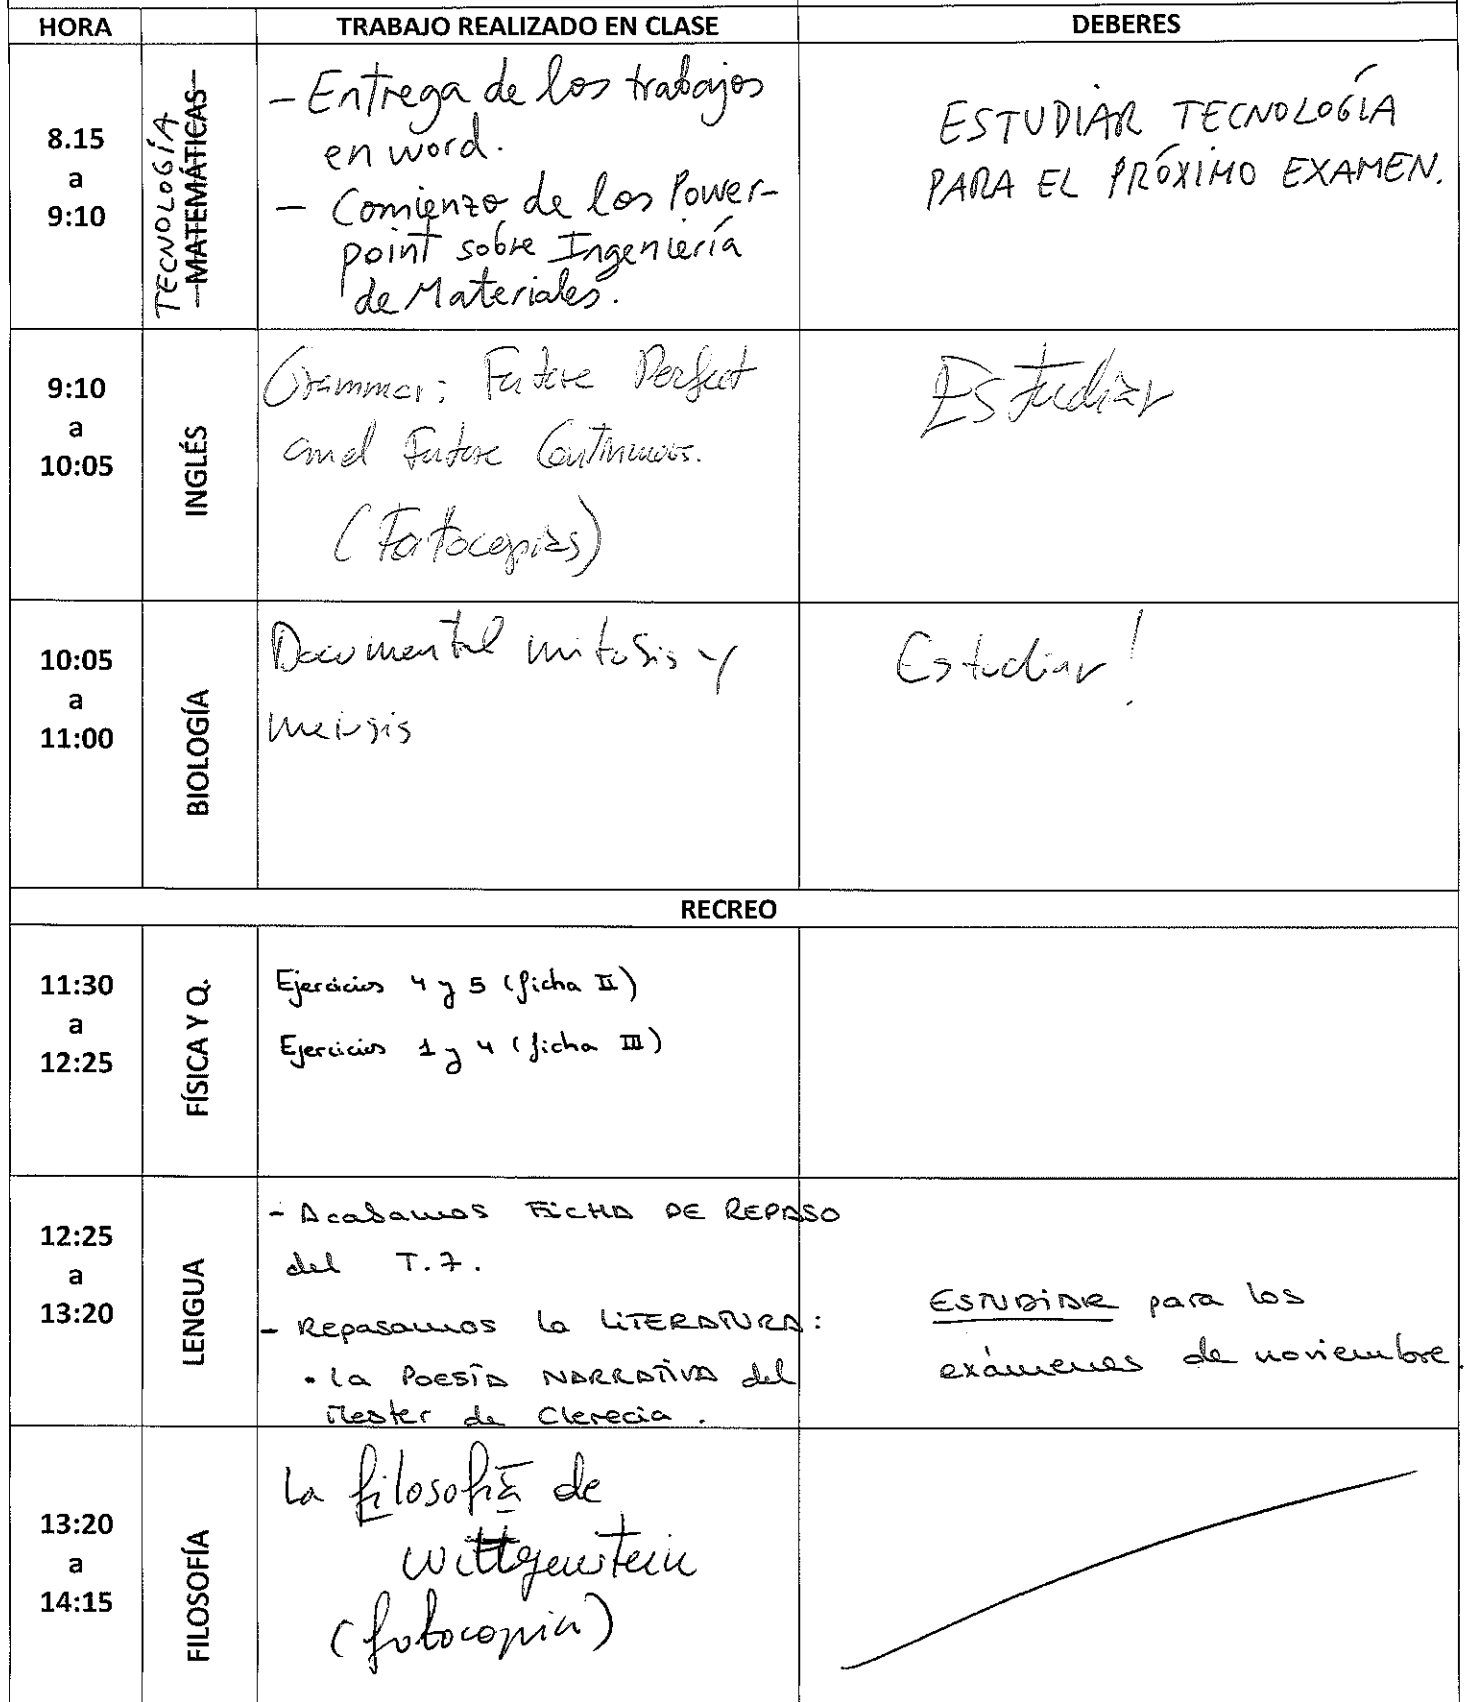 HORA TRABAJO REALIZADO EN CLASE DEBERES
8.15
a
9:10
TECNOLOGÍA
MATEMÁTICAS
- Entrega de los trabajos
en word.
- Comienzo de los Power-
point sobre Ingeniería
de Materiales.
ESTUDIAR TECNOLOGÍA
PARA EL PRÓXIMO EXAMEN.
9:10
a
10:05
INGLÉS
Grammar: Future Perfect
and Future Continuous.
(Fotocopias)
Estudiar
10:05
a
11:00
BIOLOGÍA
Documental mitosis y
meiosis
Estudiar!
RECREO
11:30
a
12:25
FÍSICA Y Q.
Ejercicios 4 y 5 (ficha II)
Ejercicios 1 y 4 (ficha III)
12:25
a
13:20
LENGUA
- Acabamos FICHA DE REPASO
del T.7.
- Repasamos la LITERATURA:
• La POESÍA NARRATIVA del
Mester de Clerecia.
ESTUDIAR para los
exámenes de noviembre.
13:20
a
14:15
FILOSOFÍA
La filosofía de
Wittgenstein
(fotocopia)